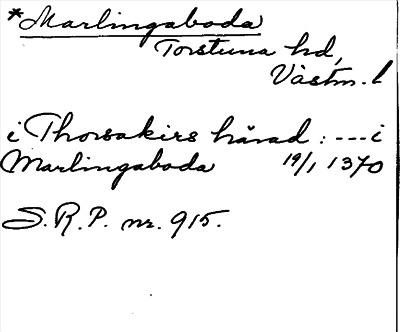 *Marlingaboda
Torstuna hd,
Västm. l
i Thorsakirs härad: --- i
Marlingaboda 19/1 1370
S.R.P. nr. 915.